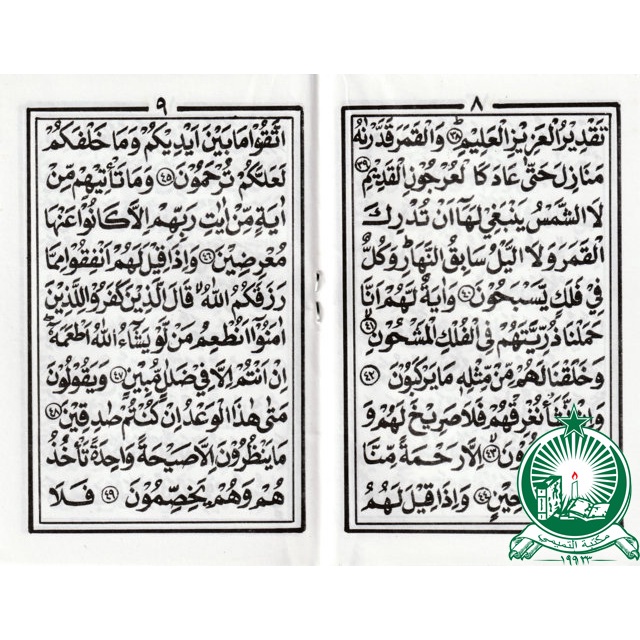 ٨
تَقْدِيْرُ الْعَزِيْزِ الْعَلِيْمِ ۝٣٨ وَالْقَمَرَ قَدَّرْنٰهُ
مَنَازِلَ حَتّٰى عَادَ كَالْعُرْجُوْنِ الْقَدِيْمِ ۝٣٩
لَا الشَّمْسُ يَنْۢبَغِيْ لَهَا اَنْ تُدْرِكَ
الْقَمَرَ وَلَا الَّيْلُ سَابِقُ النَّهَارِ وَكُلٌّ
فِيْ فَلَكٍ يَّسْبَحُوْنَ ۝٤٠ وَاٰيَةٌ لَّهُمْ اَنَّا
حَمَلْنَا ذُرِّيَّتَهُمْ فِي الْفُلْكِ الْمَشْحُوْنِ ۝٤١
وَخَلَقْنَا لَهُمْ مِّنْ مِّثْلِهٖ مَا يَرْكَبُوْنَ ۝٤٢
وَاِنْ نَّشَاْ نُغْرِقْهُمْ فَلَا صَرِيْخَ لَهُمْ وَ
۝٤٣ اِلَّا رَحْمَةً مِّنَّا
۝٤٤ وَاِذَا قِيْلَ لَهُمُ
٩
اتَّقُوْا مَا بَيْنَ اَيْدِيْكُمْ وَمَا خَلْفَكُمْ
لَعَلَّكُمْ تُرْحَمُوْنَ ۝٤٥ وَمَا تَاْتِيْهِمْ مِّنْ
اٰيَةٍ مِّنْ اٰيٰتِ رَبِّهِمْ اِلَّا كَانُوْا عَنْهَا
مُعْرِضِيْنَ ۝٤٦ وَاِذَا قِيْلَ لَهُمْ اَنْفِقُوْا مِمَّا
رَزَقَكُمُ اللّٰهُ ۙ قَالَ الَّذِيْنَ كَفَرُوْا لِلَّذِيْنَ
اٰمَنُوْۤا اَنُطْعِمُ مَنْ لَّوْ يَشَآءُ اللّٰهُ اَطْعَمَهٗۤ ۖ
اِنْ اَنْتُمْ اِلَّا فِيْ ضَلٰلٍ مُّبِيْنٍ ۝٤٧ وَيَقُوْلُوْنَ
مَتٰى هٰذَا الْوَعْدُ اِنْ كُنْتُمْ صٰدِقِيْنَ ۝٤٨
مَا يَنْظُرُوْنَ اِلَّا صَيْحَةً وَّاحِدَةً تَاْخُذُ
هُمْ وَهُمْ يَخِصِّمُوْنَ ۝٤٩ فَلَا
مكتبة التميمي
١٩٩٢٣